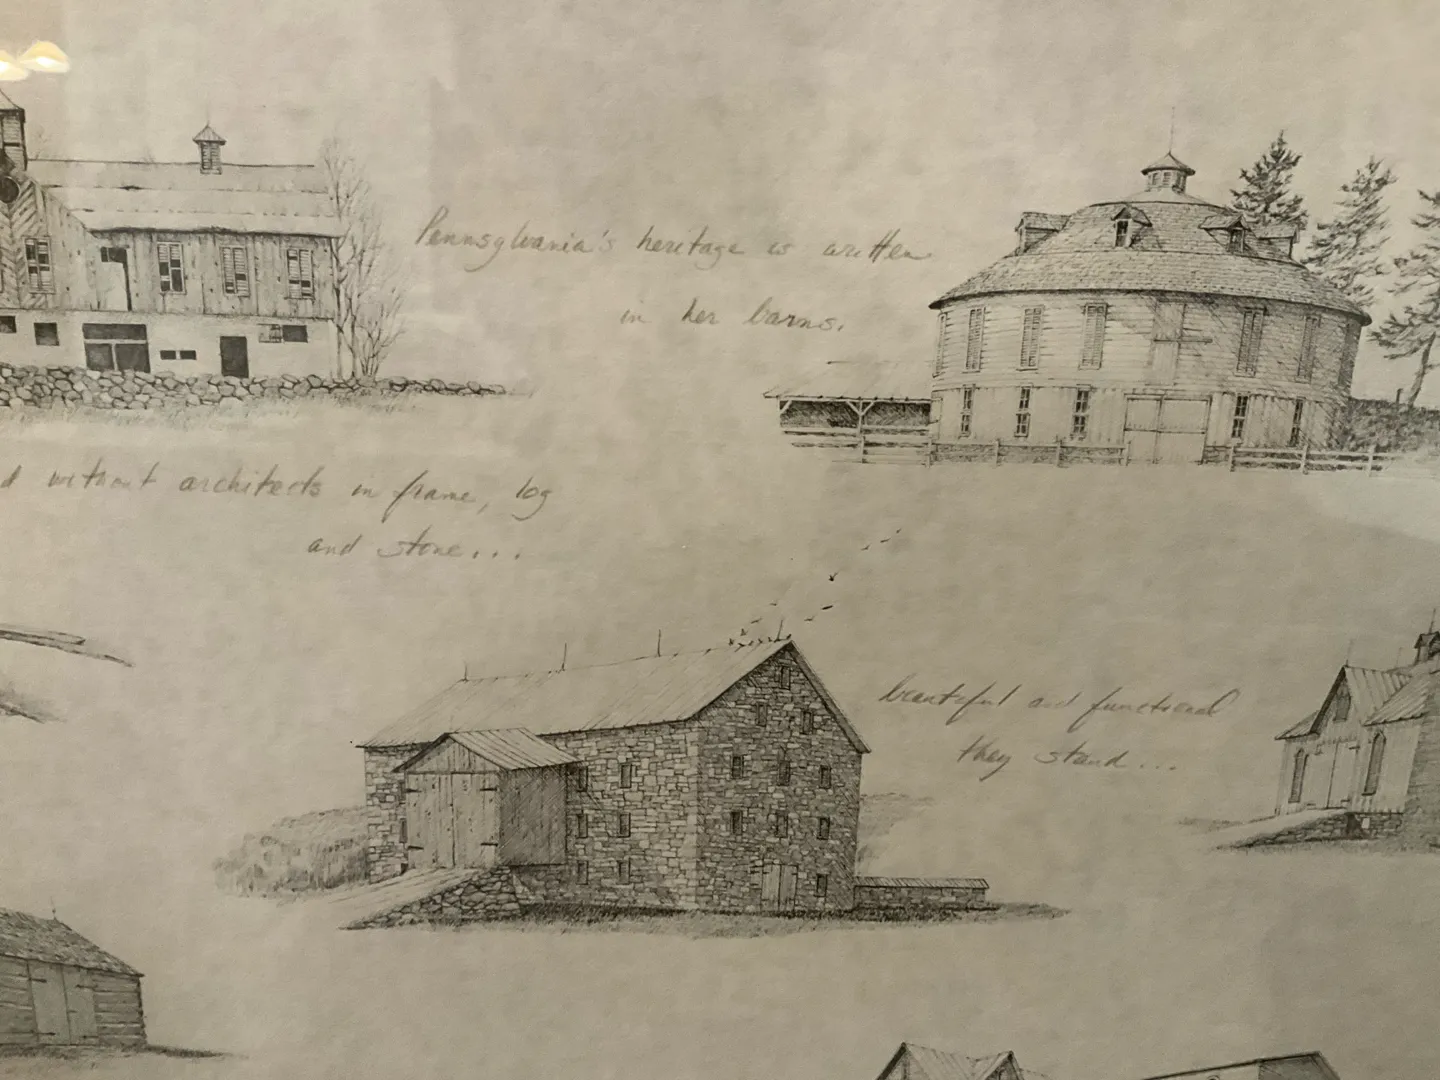 Pennsylvania's heritage is written
in her barns.
d without architects in frame, log
and stone...
beautiful and functional
they stand...